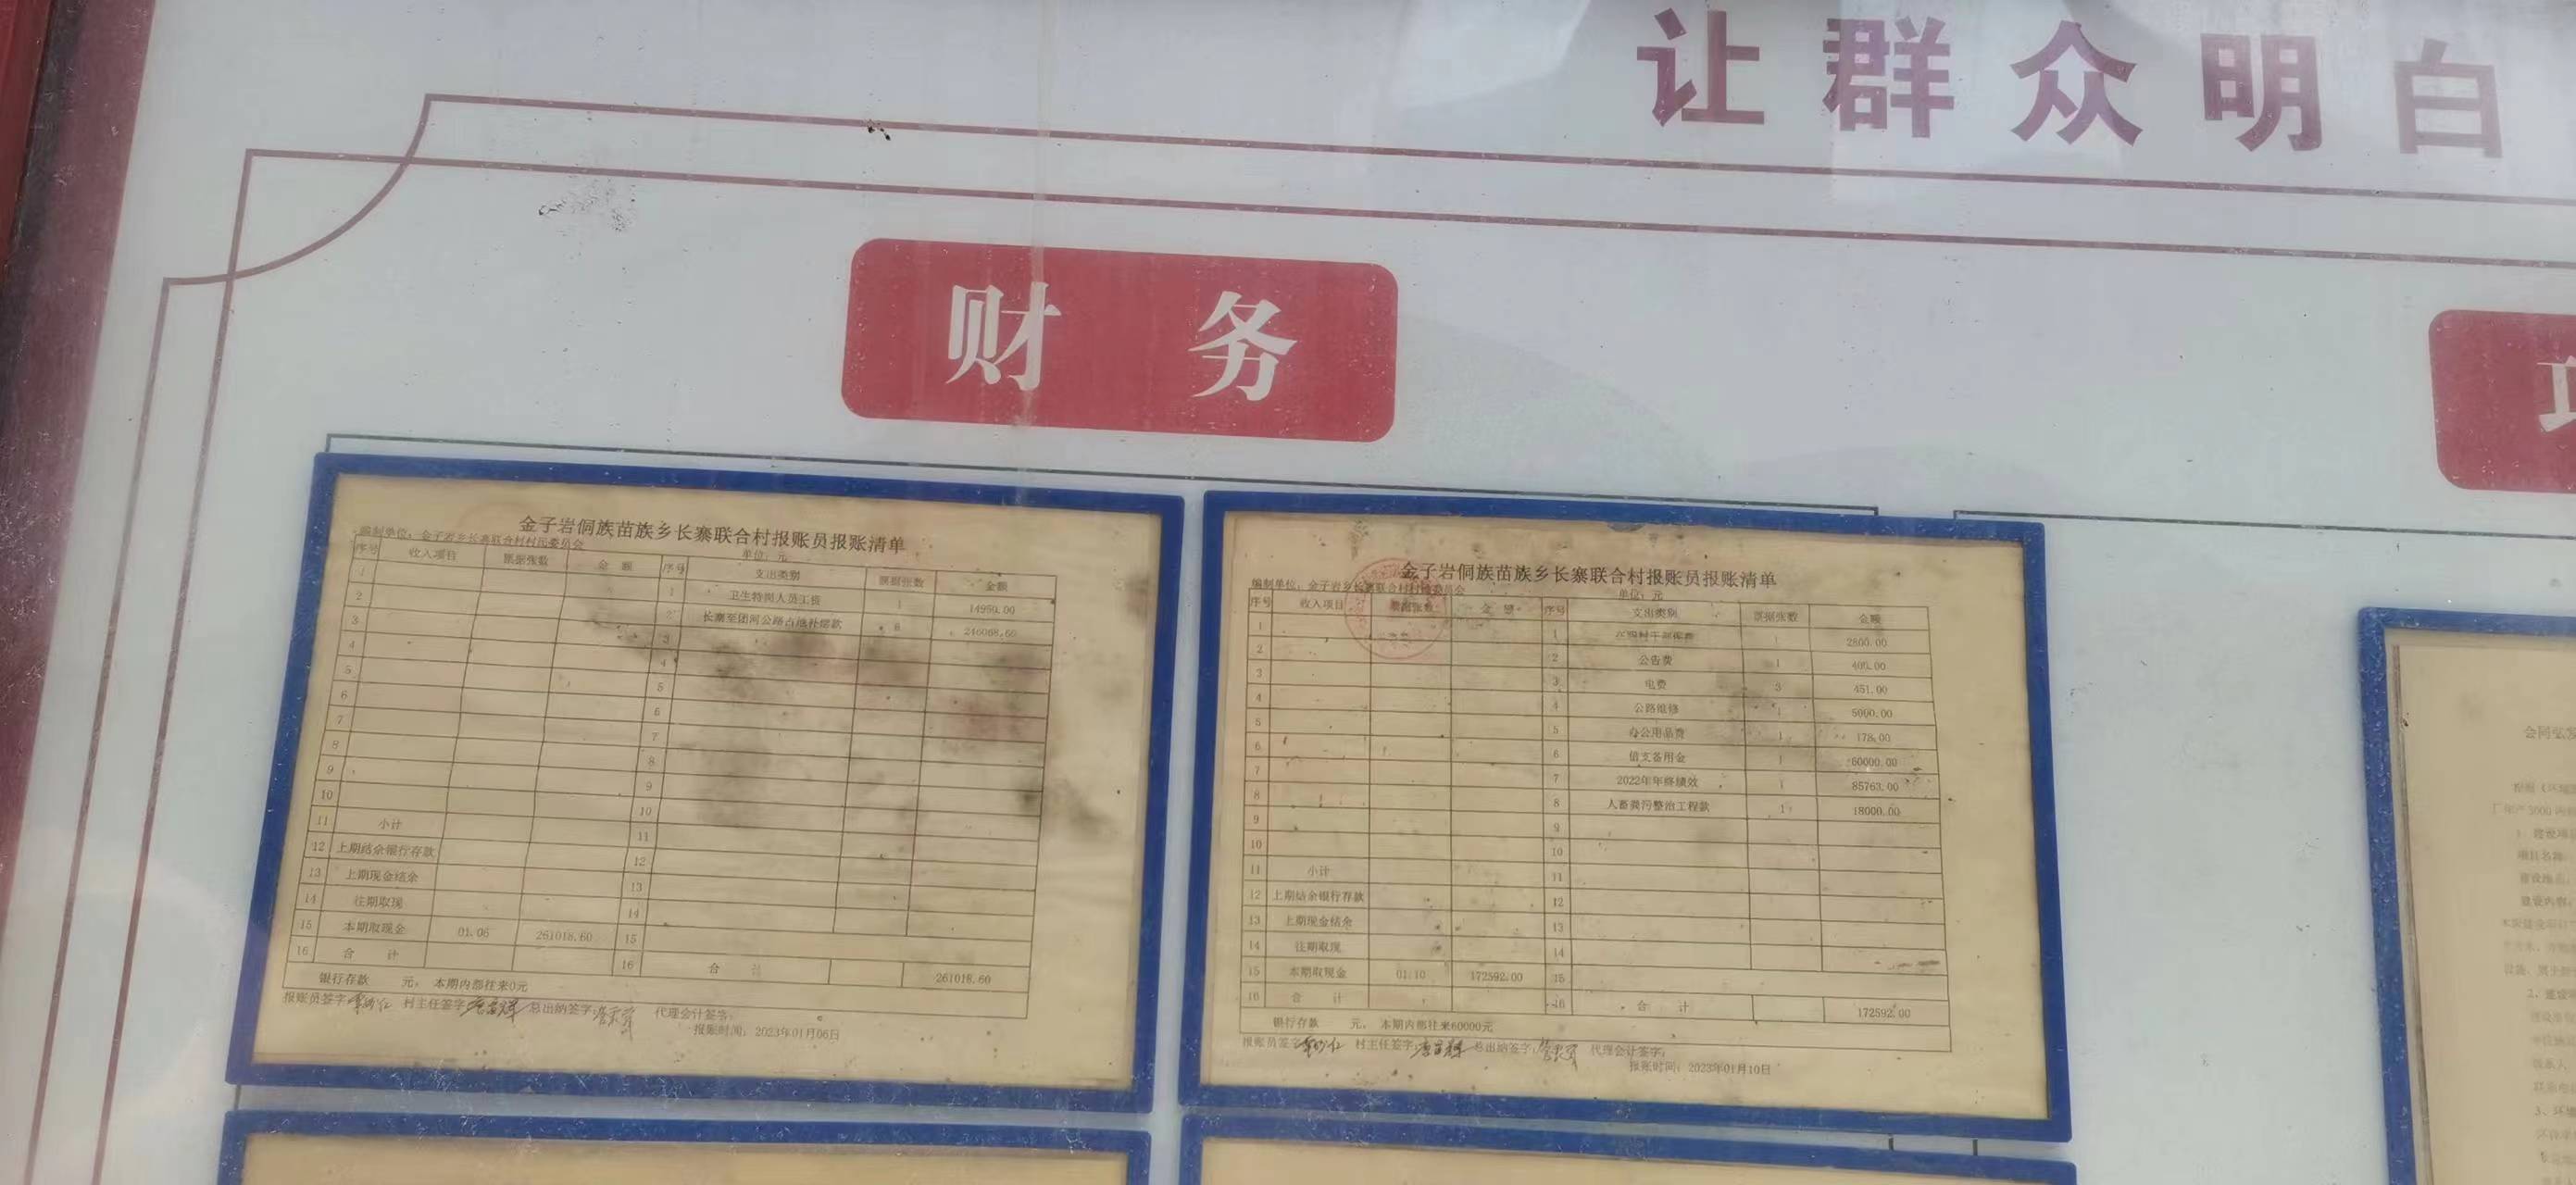 让群众明白
财务
金子岩侗族苗族乡长寨联合村报账员报账清单
编制单位：金子岩乡长寨联合村村民委员会 单位：元
序号 收入项目 票据张数 金额 序号 支出类别 票据张数 金额
1 1 卫生特岗人员工资 1 14950.00
2 2 长寨至团河公路占地补偿款 8 246068.60
3 3
4 4
5 5
6 6
7 7
8 8
9 9
10 10
11 小计 11
12 上期结余银行存款 12
13 上期现金结余 13
14 往期取现 14
15 本期取现金 01.06 261018.60 15
16 合计 16 合计 261018.60
银行存款 元， 本期内部往来0元
报账员签字： 村主任签字： 总出纳签字： 代理会计签字：
报账时间：2023年01月06日
金子岩侗族苗族乡长寨联合村报账员报账清单
编制单位：金子岩乡长寨联合村村民委员会 单位：元
序号 收入项目 票据张数 金额 序号 支出类别 票据张数 金额
1 1 1 2800.00
2 2 公告费 1 400.00
3 3 电费 3 451.00
4 4 公路维修 1 5000.00
5 5 办公用品费 1 178.00
6 6 借支备用金 1 60000.00
7 7 2022年年终绩效 1 85763.00
8 8 人畜粪污整治工程款 1 18000.00
9 9
10 10
11 小计 11
12 上期结余银行存款 12
13 上期现金结余 13
14 往期取现 14
15 本期取现金 01.10 172592.00 15
16 合计 16 合计 172592.00
银行存款 元， 本期内部往来60000元
报账员签字： 村主任签字： 总出纳签字： 代理会计签字：
报账时间：2023年01月10日